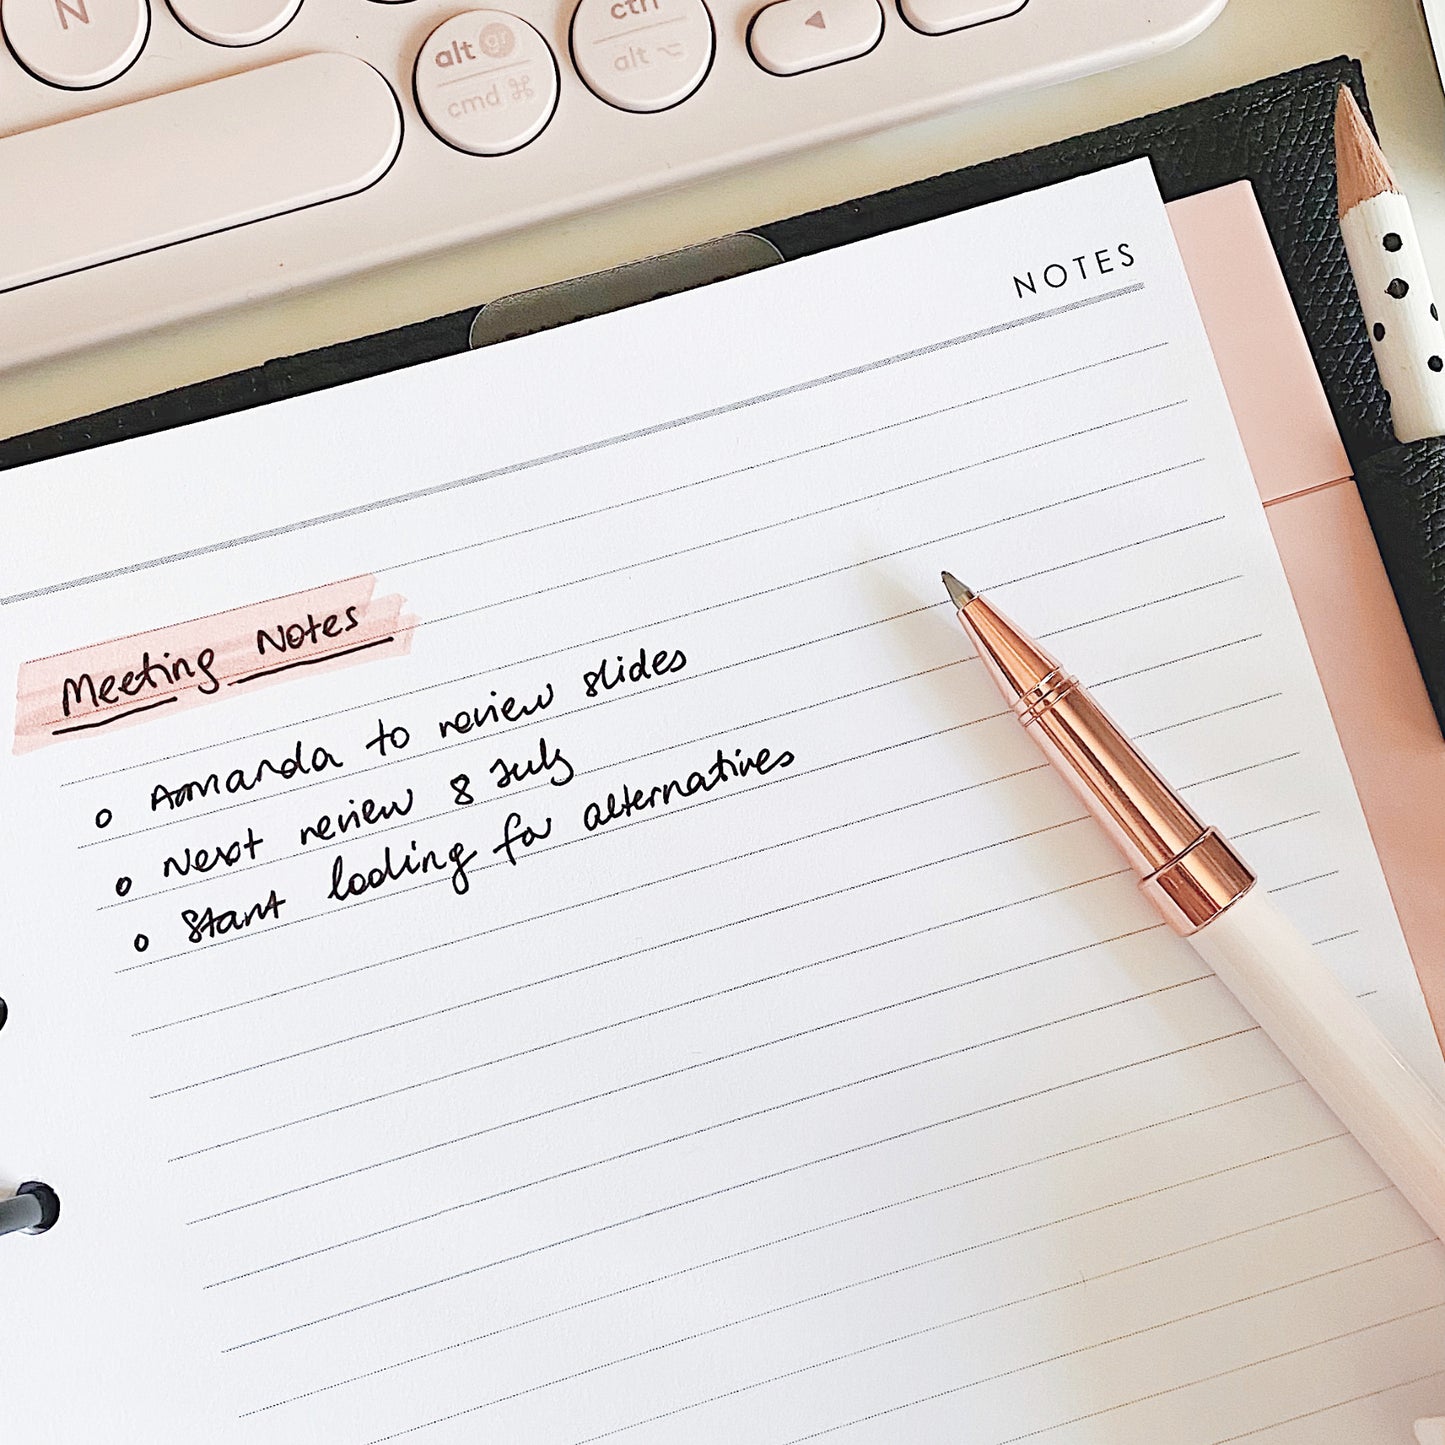 N
alt gr
cmd ⌘
ctrl
alt ⌥
NOTES
Meeting Notes
Amanda to review slides
Next review 8 July
Start looking for alternatives